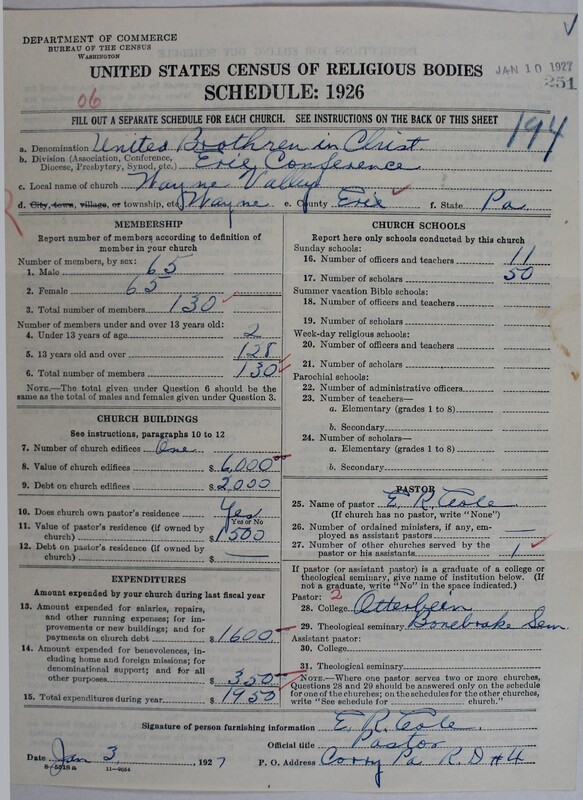 DEPARTMENT OF COMMERCE
BUREAU OF THE CENSUS
WASHINGTON
UNITED STATES CENSUS OF RELIGIOUS BODIES
SCHEDULE: 1926
JAN 10 1927
251
06
FILL OUT A SEPARATE SCHEDULE FOR EACH CHURCH. SEE INSTRUCTIONS ON THE BACK OF THIS SHEET
194
a. Denomination United Brothren in Christ.
b. Division (Association, Conference, Diocese, Presbytery, Synod, etc.) Erie Conference
c. Local name of church Wayne Valley
d. City, town, village, or township, etc. Wayne e. County Erie f. State Pa.
MEMBERSHIP
Report number of members according to definition of member in your church
Number of members, by sex:
1. Male 65
2. Female 65
3. Total number of members 130
Number of members under and over 13 years old:
4. Under 13 years of age 2
5. 13 years old and over 128
6. Total number of members 130
NOTE.—The total given under Question 6 should be the same as the total of males and females given under Question 3.
CHURCH BUILDINGS
See instructions, paragraphs 10 to 12
7. Number of church edifices One
8. Value of church edifices $ 6,000.00
9. Debt on church edifices $ 2,000
10. Does church own pastor's residence? Yes
Yes or No
11. Value of pastor's residence (if owned by church) $ 1500
12. Debt on pastor's residence (if owned by church) $ —
EXPENDITURES
Amount expended by your church during last fiscal year
13. Amount expended for salaries, repairs, and other running expenses; for improvements or new buildings; and for payments on church debt $ 1600
14. Amount expended for benevolences, including home and foreign missions; for denominational support; and for all other purposes $ 350
15. Total expenditures during year $ 1950
CHURCH SCHOOLS
Report here only schools conducted by this church
Sunday schools:
16. Number of officers and teachers 11
17. Number of scholars 50
Summer vacation Bible schools:
18. Number of officers and teachers
19. Number of scholars
Week-day religious schools:
20. Number of officers and teachers
21. Number of scholars
Parochial schools:
22. Number of administrative officers
23. Number of teachers—
a. Elementary (grades 1 to 8)
b. Secondary
24. Number of scholars—
a. Elementary (grades 1 to 8)
b. Secondary
PASTOR
25. Name of pastor E. R. Cole
(If church has no pastor, write "None")
26. Number of ordained ministers, if any, employed as assistant pastors —
27. Number of other churches served by the pastor or his assistants 1
If pastor (or assistant pastor) is a graduate of a college or theological seminary, give name of institution below. (If not a graduate, write "No" in the space indicated.)
Pastor: 2
28. College Otterbein
29. Theological seminary Bonebrake Sem.
Assistant pastor:
30. College
31. Theological seminary
NOTE.—Where one pastor serves two or more churches, Questions 28 and 29 should be answered only on the schedule for one of the churches; on the schedules for the other churches, write "See schedule for church."
Signature of person furnishing information E. R. Cole
Official title Pastor
Date Jan 3, 1927 P. O. Address Corry Pa R.D #4
8-5518a 11-9054